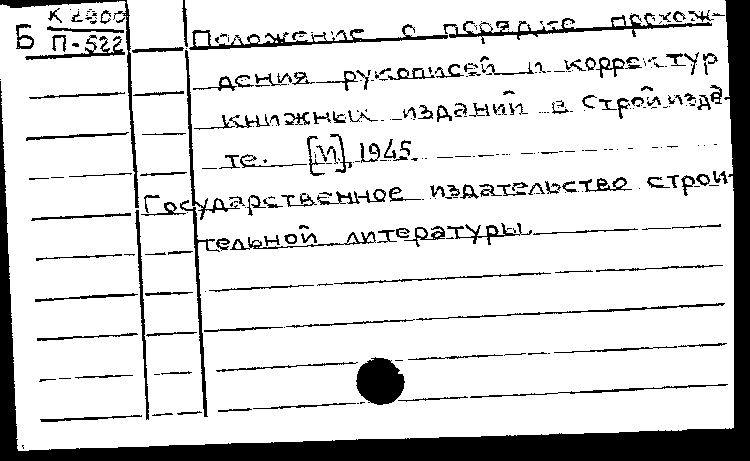 К 2900
Б П-522
Положение о порядке прохож-
дения рукописей и корректур
книжных изданий в Стройизда-
те. [М], 1945.
Государственное издательство строи-
тельной литературы.